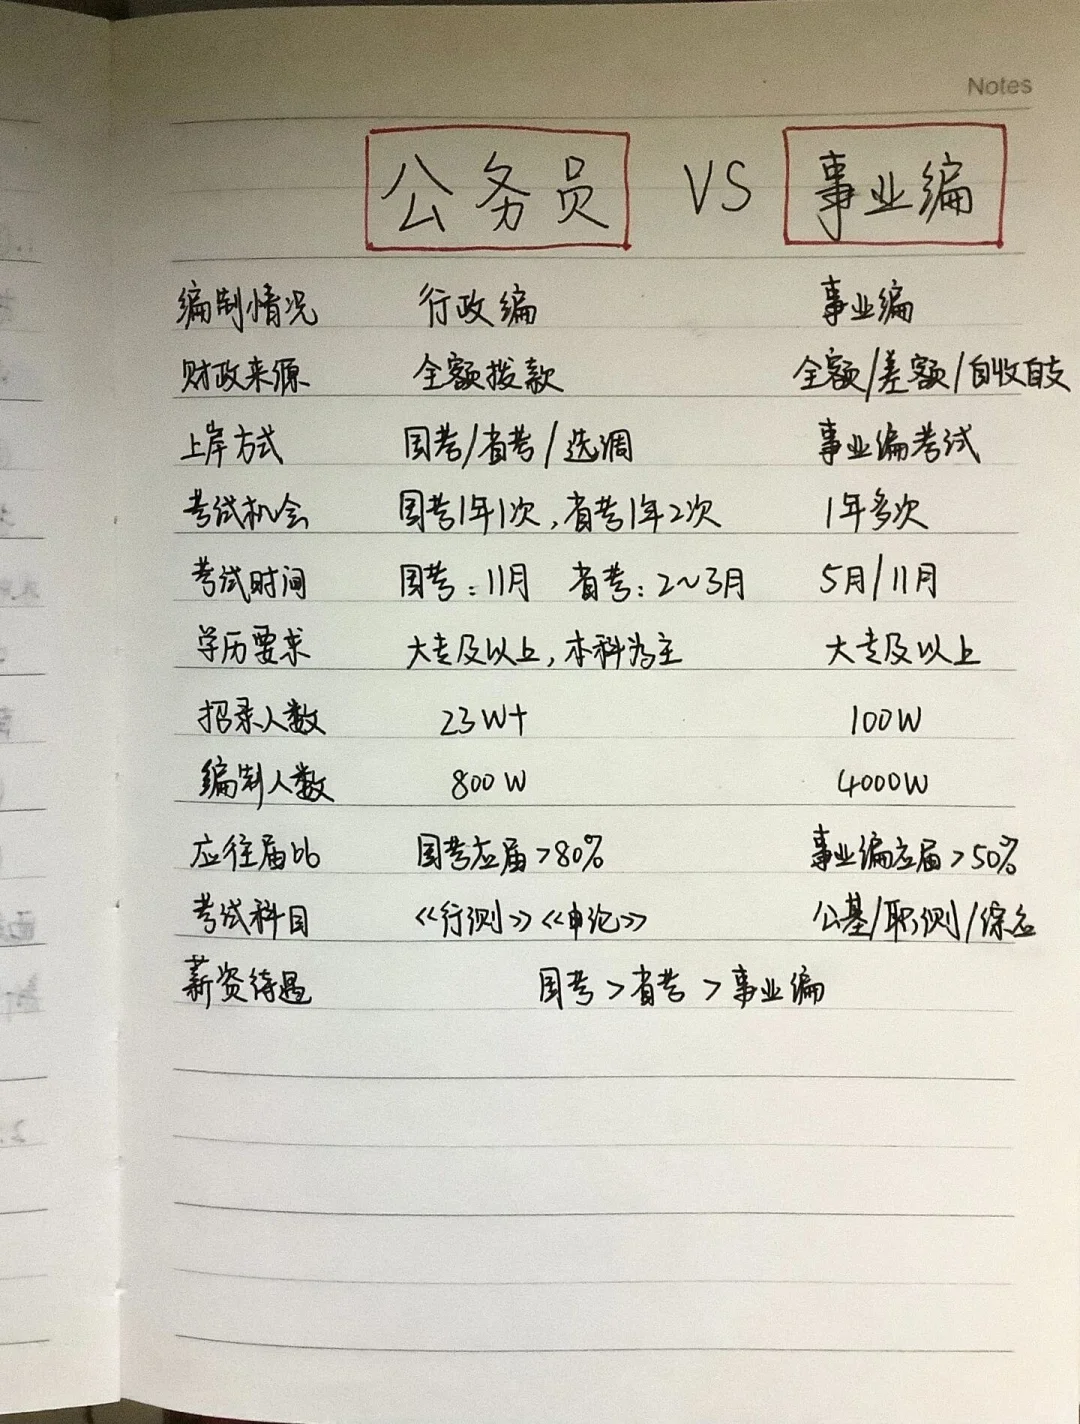 Notes
公务员 VS 事业编
编制情况 行政编 事业编
财政来源 全额拨款 全额/差额/自收自支
上岸方式 国考/省考/选调 事业编考试
考试机会 国考1年1次,省考1年2次 1年多次
考试时间 国考:11月 省考:2~3月 5月/11月
学历要求 大专及以上,本科为主 大专及以上
招录人数 23W+ 100W
编制人数 800W 4000W
应往届bb 国考应届>80% 事业编应届>50%
考试科目 《行测》《申论》 公基/职测/综应
薪资待遇 国考>省考>事业编